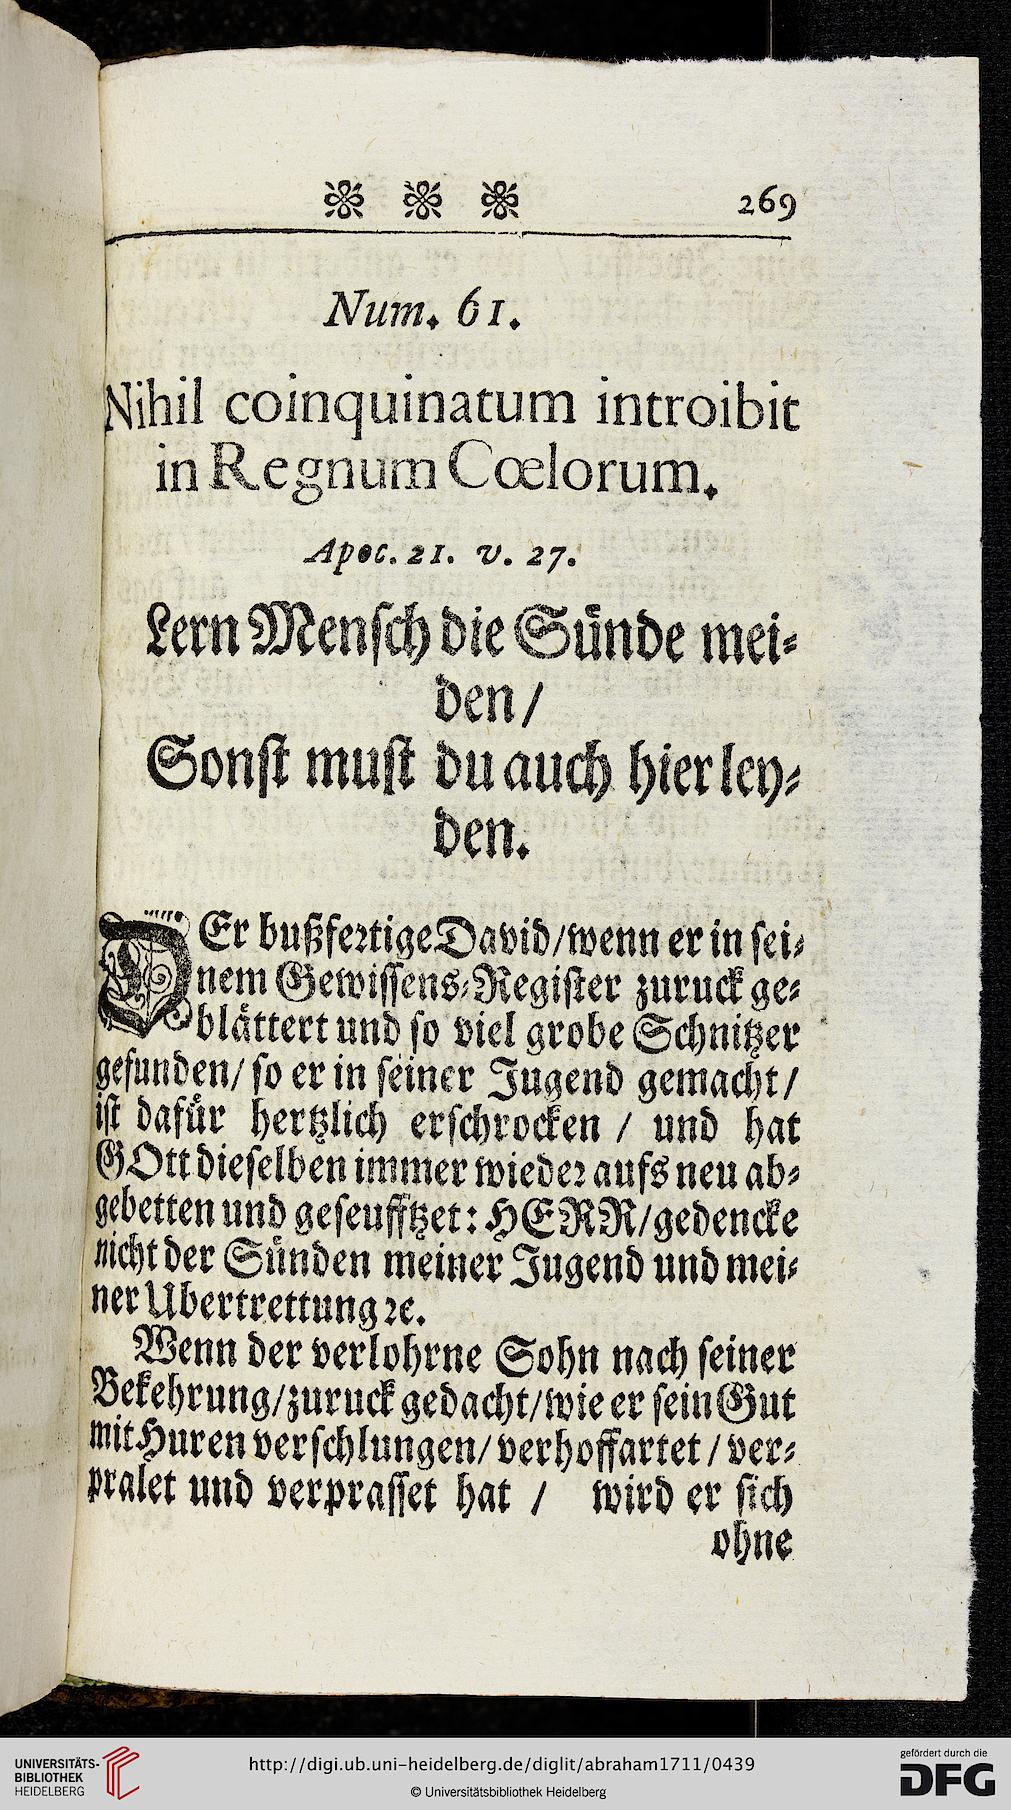 269
Num. 61.
Nihil coinquinatum introibit
in Regnum Cœlorum.
Apoc. 21. v. 27.
Lern Menſch die Sünde mei-
den /
Sonſt muſt du auch hier ley-
den.
DEr bußfertige David/wenn er in ſei-
nem Gewiſſens-Regiſter zuruck ge-
blättert und ſo viel grobe Schnitzer
gefunden/ ſo er in ſeiner Jugend gemacht/
iſt dafür hertzlich erſchrocken / und hat
GOtt dieſelben immer wieder aufs neu ab-
gebetten und geſeufftzet: HERR/gedencke
nicht der Sünden meiner Jugend und mei-
ner Ubertrettung ꝛc.
Wenn der verlohrne Sohn nach ſeiner
Bekehrung/zuruck gedacht/wie er ſein Gut
mit Huren verſchlungen/ verhoffartet / ver-
pralet und verpraſſet hat / wird er ſich
ohne
UNIVERSITÄTS-
BIBLIOTHEK
HEIDELBERG
http://digi.ub.uni-heidelberg.de/diglit/abraham1711/0439
© Universitätsbibliothek Heidelberg
gefördert durch die
DFG